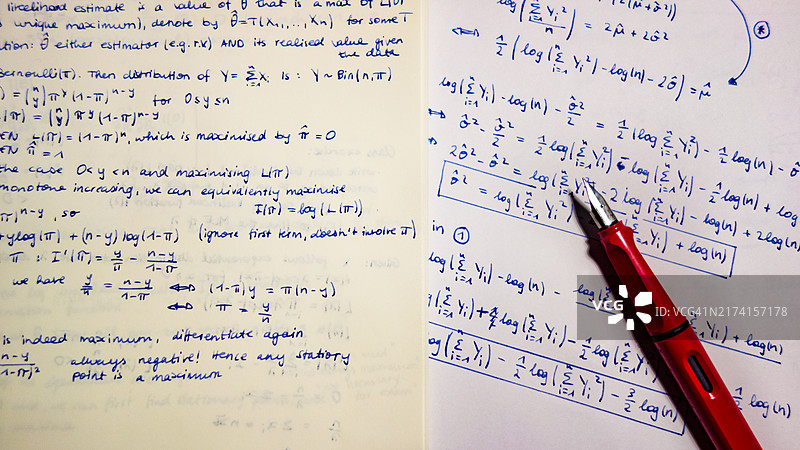 likelihood estimate is a value of θ that is a max of L(θ)
unique maximum), denote by θ̂ = T(X₁, ..., Xₙ) for some T
tion: θ̂ either estimator (e.g. r.v) AND its realised value given
the data
Bernoulli(π). Then distribution of Y = Σⁿᵢ₌₁ Xᵢ is: Y ~ Bin(n, π)
) = (n y) π^y (1-π)^(n-y) for 0 ≤ y ≤ n
(π) = (n y) π^y (1-π)^(n-y)
EN L(π) = (1-π)^n, which is maximised by π̂ = 0
EN π̂ = 1
the case 0 < y < n and maximising L(π)
monotone increasing, we can equivalently maximise
l(π) = log(L(π))
π)^(n-y), so
+ y log(π) + (n-y) log(1-π) (ignore first term, doesn't involve π)
π : l'(π) = y/π - (n-y)/(1-π)
we have y/π = (n-y)/(1-π) ⟺ (1-π)y = π(n-y)
⟺ π = y/n
is indeed maximum, differentiate again
n-y/(1-π)² always negative! Hence any statiory
point is a maximum
log(Σⁿᵢ₌₁ Yᵢ²/n) = 2μ̂ + 2σ̂²
⟺ ½(log(Σⁿᵢ₌₁ Yᵢ²) - log(n) - 2σ̂²) = μ̂
log(Σⁿᵢ₌₁ Yᵢ) - log(n) - σ̂²/2 = ½(log(Σⁿᵢ₌₁ Yᵢ²) - ½ log(n) - σ̂
⟺ σ̂² - σ̂²/2 = ½ log(Σⁿᵢ₌₁ Yᵢ²) - log(Σⁿᵢ₌₁ Yᵢ) - ½ log(n) + log
2σ̂² - σ̂² = log(Σⁿᵢ₌₁ Yᵢ² - 2 log(Σⁿᵢ₌₁ Yᵢ) - log(n) + 2 log(n)
σ̂² = log(Σⁿᵢ₌₁ Yᵢ²) + log(n)
in ①
log(Σⁿᵢ₌₁ Yᵢ) - log(n) - log( Yᵢ) + log(n)
(Σⁿᵢ₌₁ Yᵢ) + ½ log(Σⁿᵢ₌₁ Yᵢ) - ½ log(n) ½ log(n)
og(Σⁿᵢ₌₁ Yᵢ) - ½ log(Σⁿᵢ₌₁ Yᵢ²) - 3/2 log(n)
VCG
ID: VCG41N2174157178